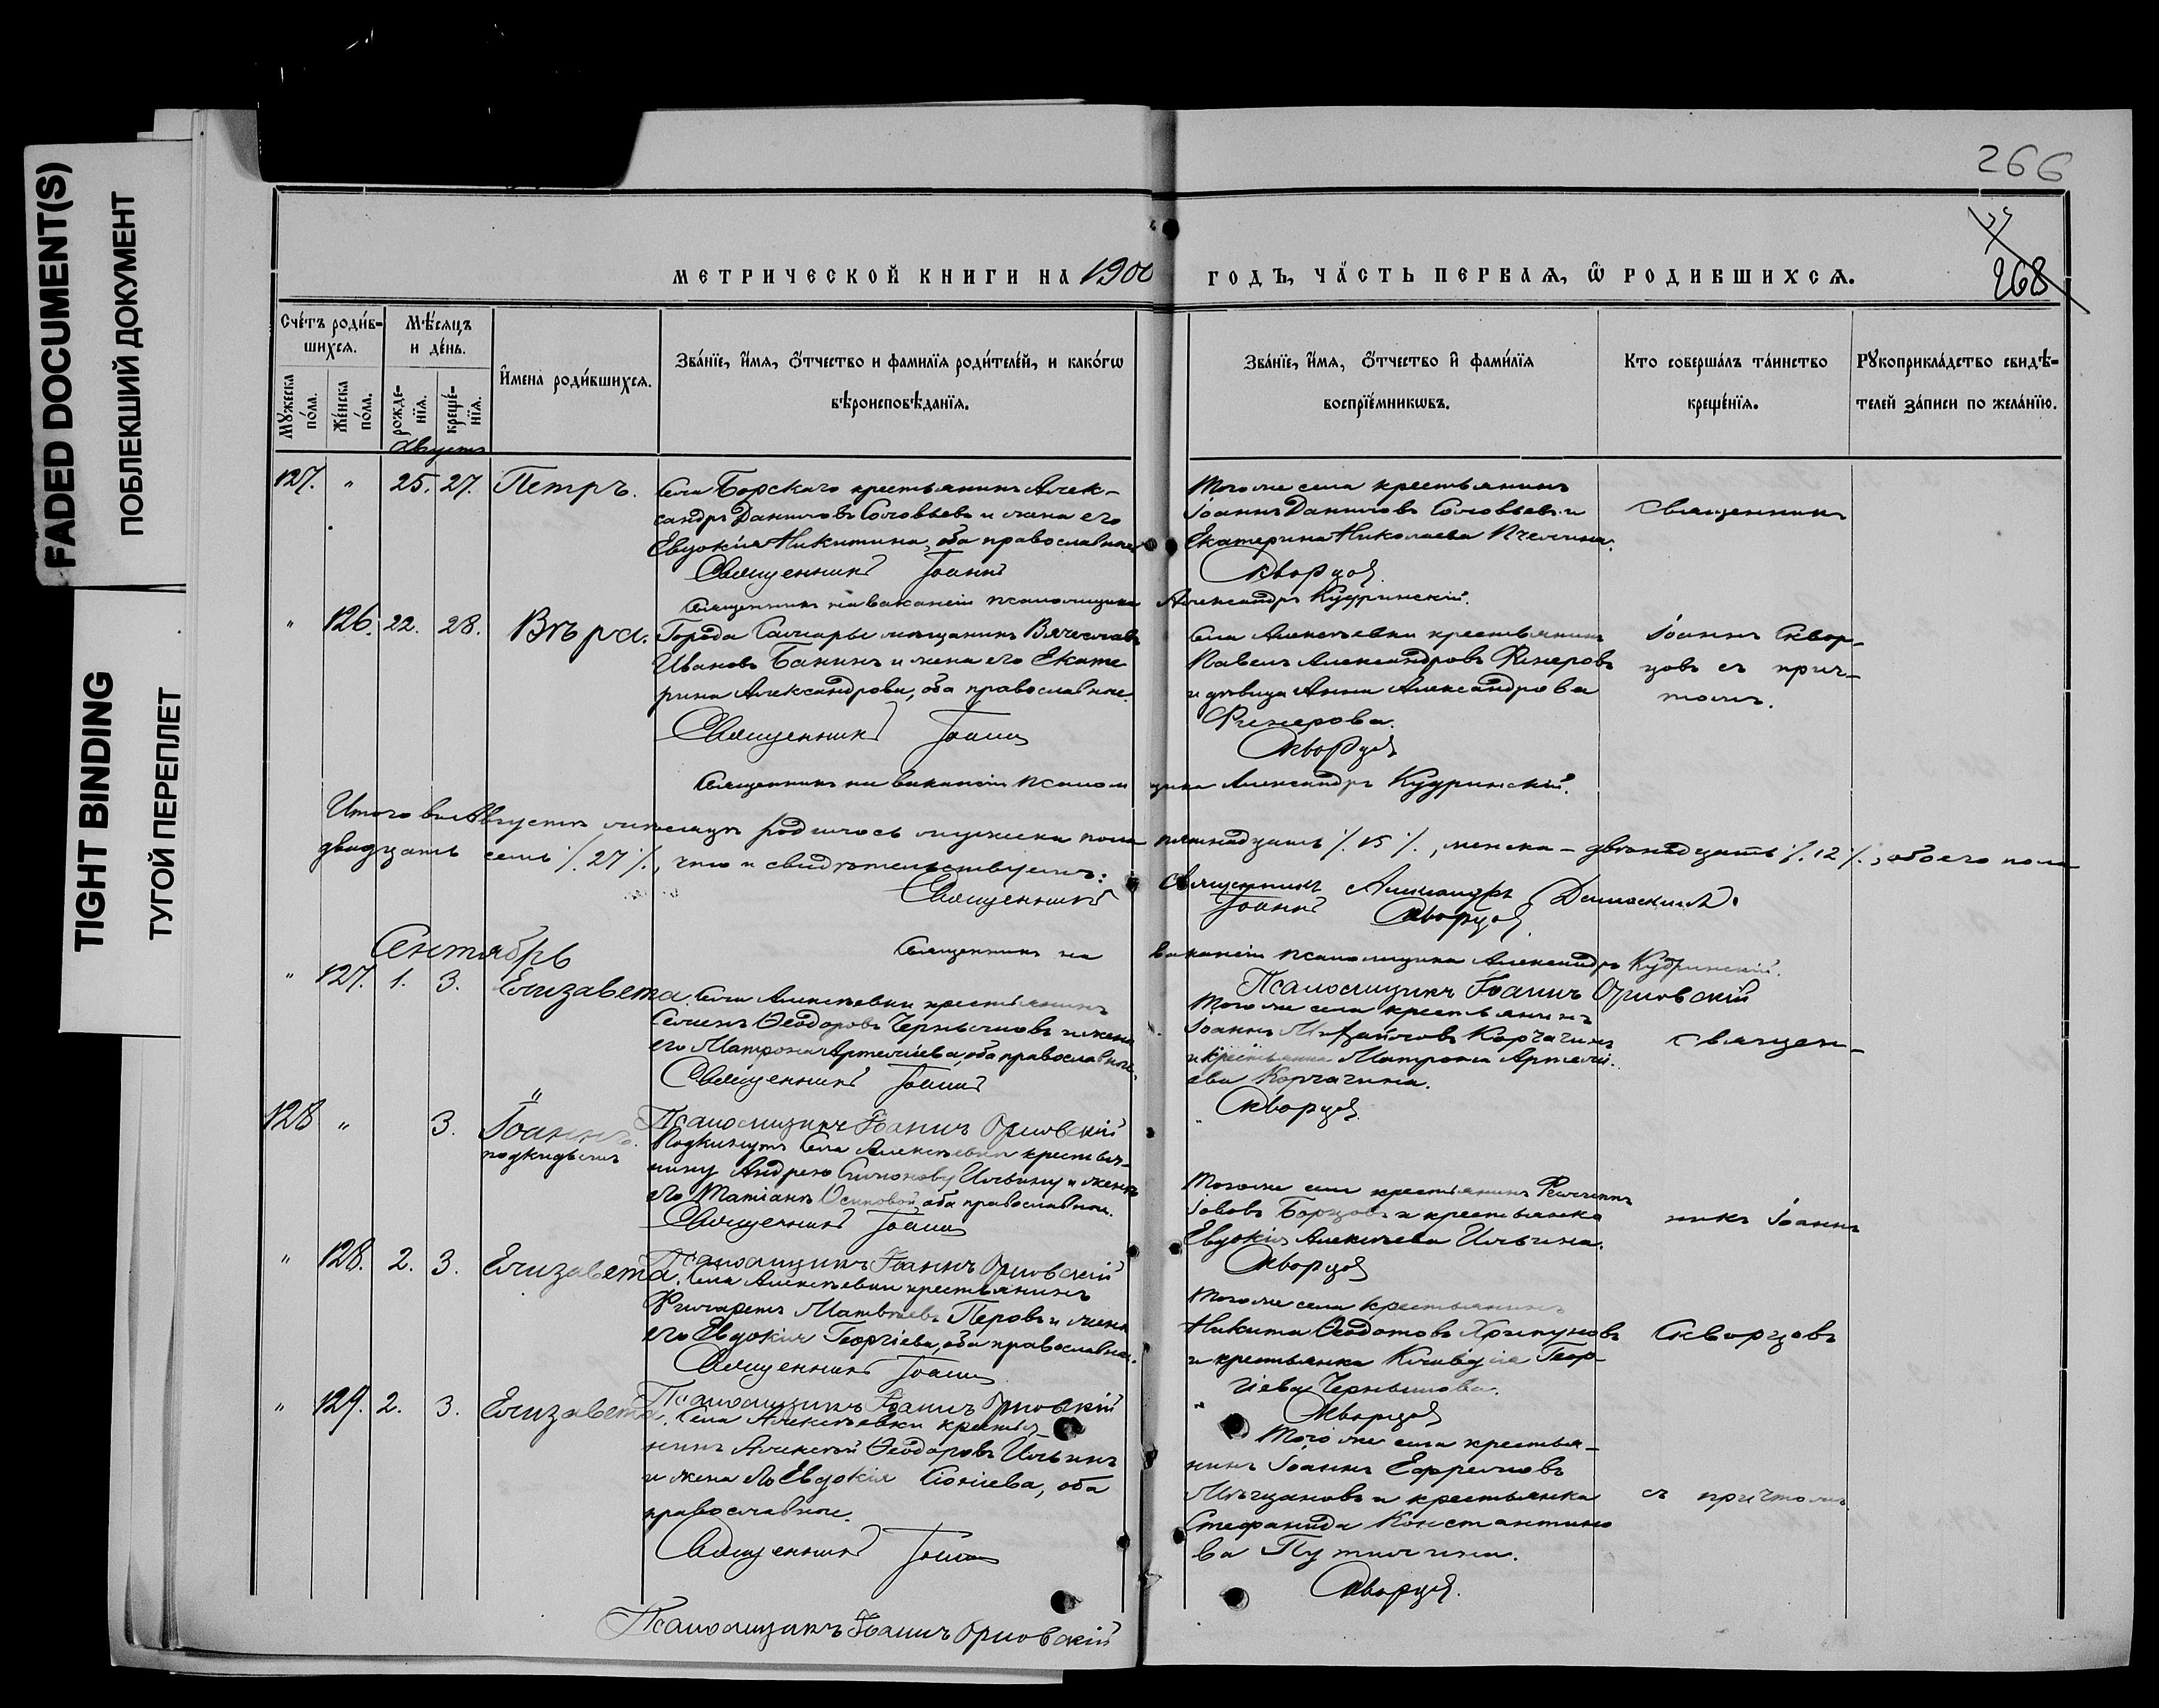 FADED DOCUMENT(S)
ПОБЛЕКШИЙ ДОКУМЕНТ
TIGHT BINDING
ТУГОЙ ПЕРЕПЛЕТ
266
268
МЕТРИЧЕСКОЙ КНИГИ НА 1900 ГОДЪ, ЧАСТЬ ПЕРВАЯ, Ѡ РОДИВШИХСЯ.
Счетъ родив-
шихся.
Мѣсяцъ
и день.
Имена родившихся.
Званїе, имя, отчество и фамилїя родителей, и какогѡ
вѣроисповѣданїя.
Званїе, имя, отчество и фамилїя
воспрїемникѡвъ.
Кто совершалъ таинство
крещенїя.
Рукоприкладство свидѣ-
телей записи по желанїю.
Мужеска
пола.
Женска
пола.
рожде-
нїя.
креще-
нїя.
Августъ
127. " 25. 27. Петръ.
Села Борскаго крестьянинъ Алек-
сандръ Даниловъ Соловьевъ и жена его
Евдокія Никитина, оба православные
Священникъ Іоаннъ
Того же села крестьянинъ
Іоаннъ Даниловъ Соловьевъ и
Екатерина Николаева Пчелина.
Скворцовъ.
Священникъ
Священникъ на вакансіи псаломщика Александръ Кудринскій.
" 126. 22. 28. Вѣра.
Города Самары мѣщанинъ Вячеславъ
Ивановъ Банинъ и жена его Екате
рина Александрова, оба православные.
Священникъ Іоаннъ
Села Алексѣевки крестьянинъ
Павелъ Александровъ
и дѣвица Анна Александрова
Скворцовъ
Іоаннъ Сквор-
цовъ съ прич-
томъ.
Священникъ на вакансіи псаломщика Александръ Кудринскій.
Итого въ Августѣ мѣсяцѣ родилось мужска пола пятнадцать /. 15 /., женска - двѣнадцать /. 12 /., обоего пола
двадцать семь /. 27 /., что и свидѣтельствуемъ:
Священникъ Александръ
Священникъ Іоаннъ Скворцовъ.
Священникъ на вакансіи псаломщика Александръ Кудринскій.
Псаломщикъ Іоаннъ Орловскій
Сентябрь
" 127. 1. 3. Елизавета.
Села Алексѣевки крестьянинъ
Семенъ Ѳеодоровъ Чернышовъ и жена
его Матрона Артеміева, оба православные.
Священникъ Іоаннъ
Того же села крестьянинъ
Іоаннъ Михайловъ Корчагинъ
и крестьянка Матрона Артемі-
ева Корчагина.
Скворцовъ.
Священ-
Псаломщикъ Іоаннъ Орловскій
128 " " 3. Іоаннъ.
подкидышъ
Подкинутъ Села Алексѣевки крестья-
нину Андрею Симонову Ильину и женѣ
его Татіанѣ Осиповой, оба православные.
Священникъ Іоаннъ
Того же села крестьянинъ Филиппъ
Іововъ Борцовъ и крестьянка
Евдокія Алексѣева Ильина.
Скворцовъ
никъ Іоаннъ
Псаломщикъ Іоаннъ Орловскій
" 128. 2. 3. Елизавета.
Села Алексѣевки крестьянинъ
Филаретъ Матвѣевъ Перовъ и жена
его Евдокія Георгіева, оба православные.
Священникъ Іоаннъ
Того же села крестьянинъ
Никита Ѳеодотовъ Хрипуновъ
и крестьянка Клавдія Геор-
гіева Чернышова.
Скворцовъ
Скворцовъ
Псаломщикъ Іоаннъ Орловскій
" 129. 2. 3. Елизавета.
Села Алексѣевки крестья-
нинъ Алексѣй Ѳеодоровъ Ильинъ
и жена его Евдокія оба
православные.
Священникъ Іоаннъ
Того же села крестья-
нинъ Іоаннъ Ефремовъ
и крестьянка
Стефанида Константино
ва Путилина.
Скворцовъ.
съ причтомъ
Псаломщикъ Іоаннъ Орловскій